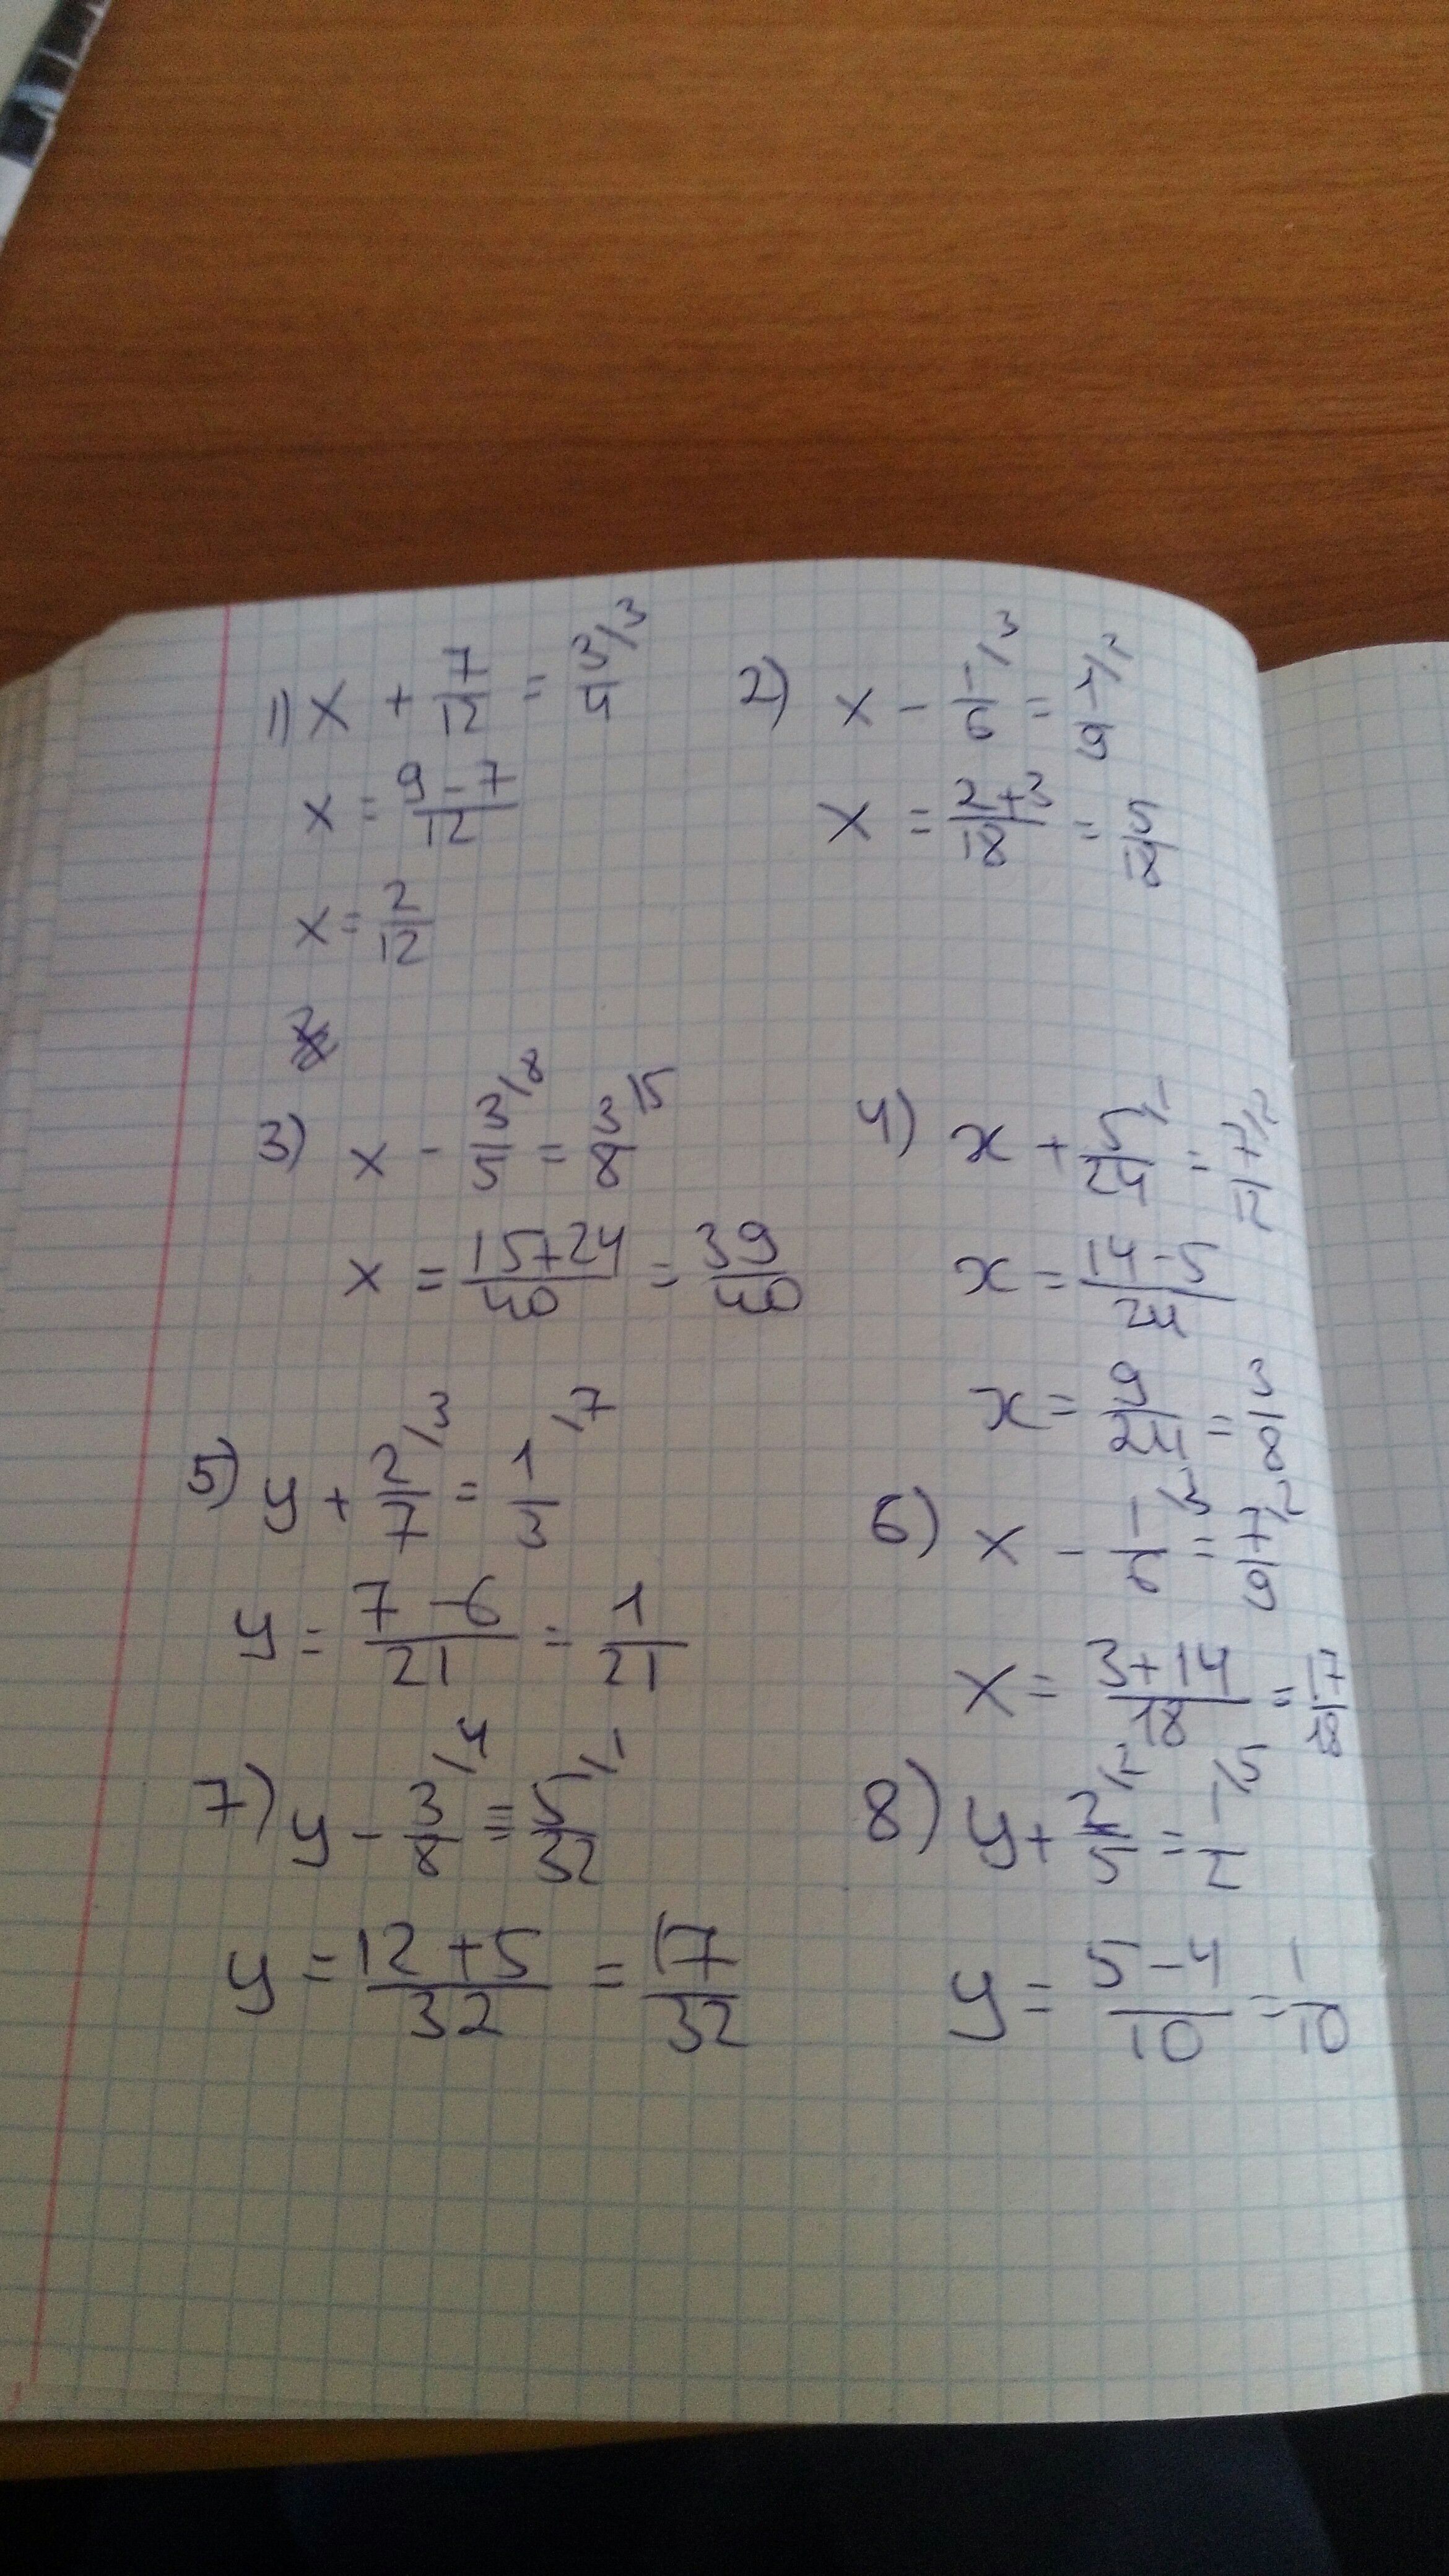 1) x + 7/12 = 3/4 \3
x = (9-7)/12
x = 2/12
2) x - 1/6 \3 = 1/9 \2
x = (2+3)/18 = 5/18
3) x - 3/5 \8 = 3/8 \5
x = (15+24)/40 = 39/40
4) x + 5/24 \1 = 7/12 \2
x = (14-5)/24
x = 9/24 = 3/8
5) y + 2/7 \3 = 1/3 \7
y = (7-6)/21 = 1/21
6) x - 1/6 \3 = 7/9 \2
x = (3+14)/18 = 17/18
7) y - 3/8 \4 = 5/32 \1
y = (12+5)/32 = 17/32
8) y + 2/5 \2 = 1/2 \5
y = (5-4)/10 = 1/10